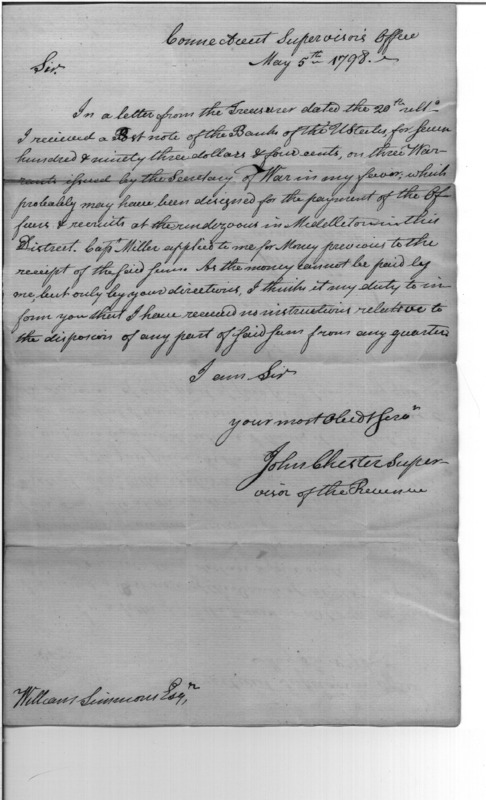 Connecticut Supervisor's Office
May 5th 1798.
Sir.
In a letter from the Treasurer dated the 20th ulto
I received a Post note of the Bank of the U States for seven
hundred & ninety three dollars & four cents, on three War-
rants issued by the Secretary of War in my favor, which
probably may have been designed for the payment of the Of-
ficers & recruits at the rendezvous in Middleton in this
District. Capt Miller applied to me for Money previous to the
receipt of the said sum. As the money cannot be paid by
me, but only by your directions, I think it my duty to in-
form you that I have received no instructions relative to
the disposion of any part of said sum from any quarter
I am Sir
your most Obedt Servt
John Chester Super-
visor of the Revenue
William Simmons Esqr,